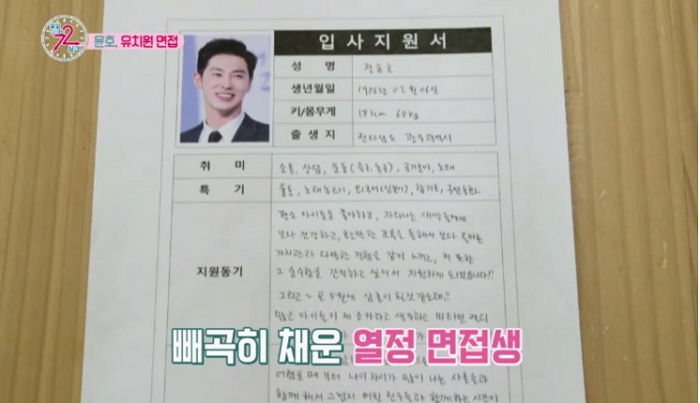 72
윤호, 유치원 면접
입사지원서
성 명 정윤호
생년월일 1986년 02월 06일
키/몸무게 187cm
출생지 전라남도 광주광역시
취 미 소통, 상담, 운동(축구, 농구), 노래
특 기 운동, 노래부르기, 합기도, 구연동화
평소 아이들을 좋아하고, 자라나는 새싹들에게
보다 건강하고, 교육을 통해서 보다 올바른
가치관과 다양한 경험을 같이 느끼고, 저 또한
그 순수함을 간직하고 싶어서 지원하게 되었습니다!!
지원동기
그리고 곧 5월에 삼촌이 될것 같은데,,
많은 아이들이 제 조카라고 생각하고 비타민 캔디
빼곡히 채운 열정 면접생
어렸을 때부터 나이 차이가 많이 나는 사촌들과
함께 해서 그런지 어린 친구들과 함께하는 시간이